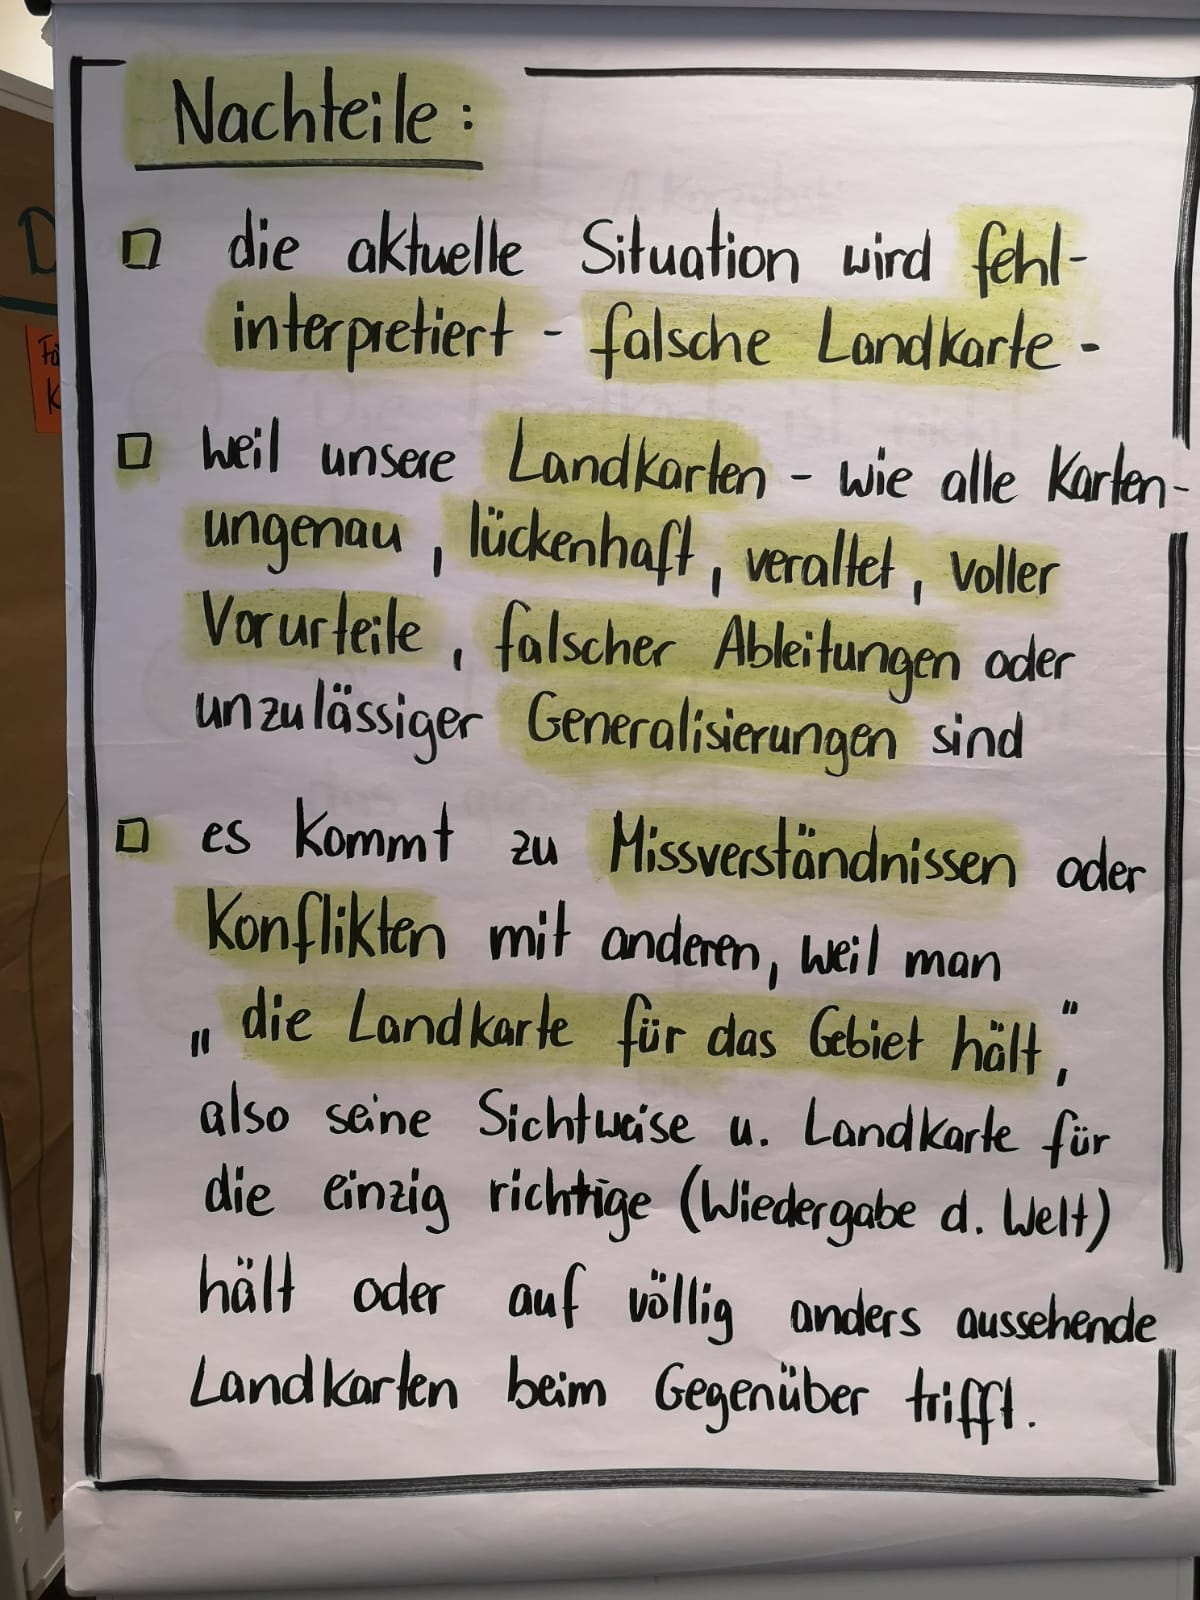 Nachteile:
die aktuelle Situation wird fehl-
interpretiert - falsche Landkarte -
weil unsere Landkarten - wie alle Karten-
ungenau, lückenhaft, veraltet, voller
Vorurteile, falscher Ableitungen oder
unzulässiger Generalisierungen sind
es kommt zu Missverständnissen oder
Konflikten mit anderen, weil man
„die Landkarte für das Gebiet hält",
also seine Sichtweise u. Landkarte für
die einzig richtige (Wiedergabe d. Welt)
hält oder auf völlig anders aussehende
Landkarten beim Gegenüber trifft.